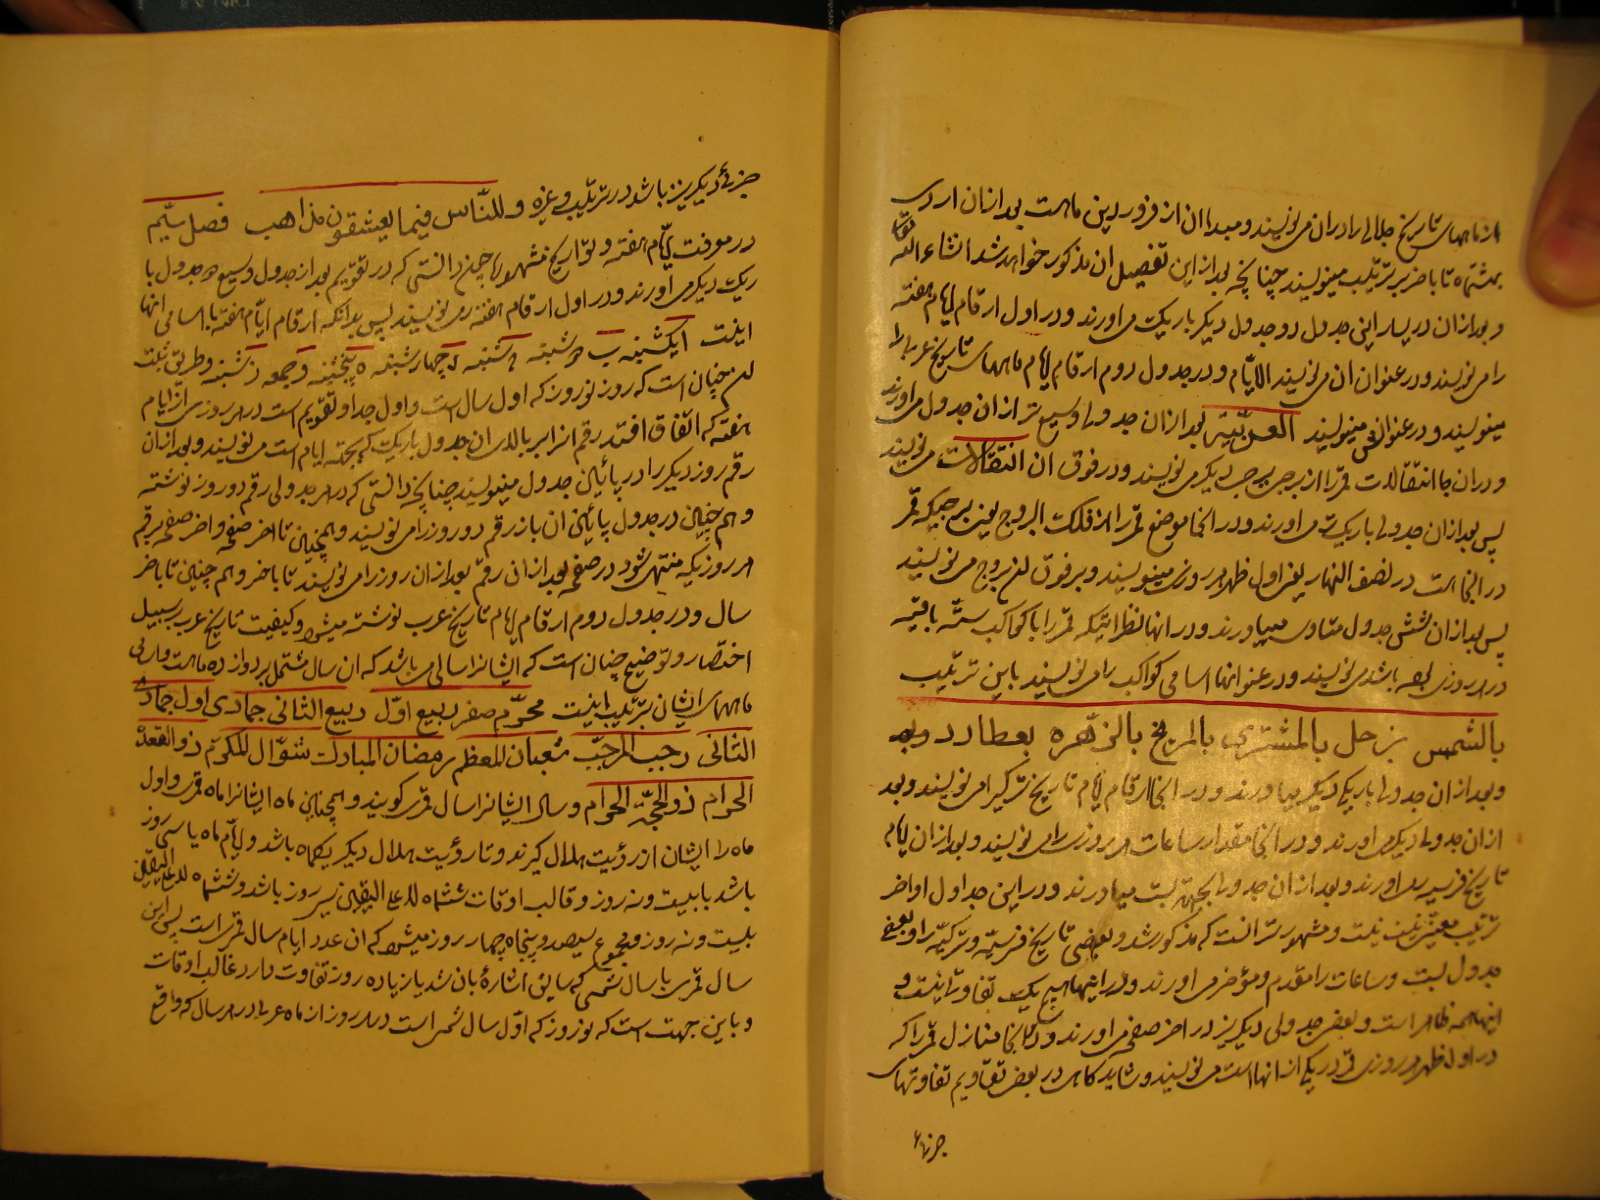 از ماههای تاریخ جلالی را در ان می نویسند و مبدا ان از فروردین ماهست بعد ازان اردی
بهشتماه تا باخر بر ترتیب مینویسند چنانچه بعد ازین تفصیل ان مذکور خواهد شد انشاء الله تعالی
و بعد ازان در یسار این جدول دو جدول دیگر باریک می اورند و در اول ارقام ایام هفته
را می نویسند و در عنوان ان می نویسند الایام و در جدول دوم ارقام ایام ماههای تاریخ عربی را
مینویسند و در عنوانش مینویسند العربیّة بعد ازان جدولی وسیع تر ازان جدول می اورند
و دران جا انتقالات قمر از برجی ببرجی دیگر می نویسند و در فوق ان انتقالات می نویسند
پس بعد ازان جدولی باریک می اورند و در انجا موضع قمر را از فلک البروج یعنی برجیکه قمر
در انجاست در نصف النهار یعنی اول ظهر هر روزی مینویسند و بر فوق البروج می نویسند
پس بعد ازان شش جدول متساوی میاورند و در انها نظراتیکه قمر را با کواکب ستّه باقیه
در هر روزی باشد می نویسند و در عنوانها اسامی کواکب را می نویسند باین ترتیب
بالشمس بزحل بالمشتری بالمریخ بالزّهره بعطارد و
و بعد ازان جدولی باریکی دیگر میاورند و در انجا ارقام ایام تاریخ ترکی را می نویسند و بعد
ازان جدولی دیگر می اورند و در انجا مقدار ساعات هر روزی را می نویسند و بعد ازان ایام
تاریخ فرسیه اورند و بعد ازان جدولی بجهة بست میاورند و در این جداول اواخر
ترتیب معتبر نیست و مشهور تر انست که مذکور شد و بعضی تاریخ فرسیّه و ترکیّه را و بعضی
جدول بست و ساعات را مقدم و مؤخر می اورند و در اینها هیچ یک تفاوتی نیست و
اینهمه ظاهر است و بعضی جدولی دیگر نیز در اخر صفحه می اورند و در انجا منازل قمر را که
در اول ظهر هر روزی قمر در یکی از انها است می نویسند و شاید گاهی در بعض تقاویم تفاوتهای
جزئی
جزئی دیگر نیز باشد در ترتیب و غیره و للنّاس فیما یعشقون مذاهب فصل سیّم
در معرفت ایّام هفته و تواریخ مشهوره چون دانستی که در تقویم بعد از جدول وسیع دو جدول با
ریک دیگر می اورند و در اول ارقام هفته را می نویسند پس بدانکه ارقام ایام هفته با اسامی انها
اینست ا یکشنبه ب دوشنبه ج سه شنبه د چهارشنبه ه پنجشنبه و جمعه ز شنبه و طریق ثبت
ان چنان است که روز نوروز که اول سال است و اول جداول تقویم است در هر روزی از ایام
هفته که اتفاق افتد رقم انرا بر بالای ان جدول باریک که بجهته ایام است می نویسند و بعد ازان
رقم روز دیگر را در پایین جدول مینویسند چنانچه دانستی که در هر جدولی رقم دو روز نوشته
و هم چنین در جدول پائین ان باز رقم دو روز را می نویسند و همچنین تا اخر صفحه و اخر صفحه برقم
هر روزیکه منتهی شود در صفحه بعد ازان رقم بعد ازان روز را می نویسند تا باخر و هم چنین تا باخر
سال و در جدول دوم ارقام ایام تاریخ عرب نوشته میشود و کیفیت تاریخ عرب بر سبیل
اختصار و توضیح چنان است که ایشانرا سالی می باشد که ان سال مشتمل بر دوازده ماهست و اسامی
ماههای ایشان بترتیب اینست محرّم صفر ربیع اوّل ربیع الثانی جمادی اول جمادی
الثانی رجب المرجّب شعبان المعظم رمضان المبارک شوّال المکرّم ذو القعدة
الحرام ذو الحجّة الحرام و سال ایشانرا سال قمری گویند و همچنین ماه ایشانرا ماه قمری و اول
ماه را ایشان از رؤیت هلال گیرند و تا رؤیت هلال دیگر یکماه باشد و ایّام ماه یا سی روز
باشد یا بیست و نه روز و غالب اوقات ششماه لا علی الیقین سی روز باشد و ششماه لا علی الیقین
بیست و نه روز و مجموع سیصد و پنجاه چهار روز میشود که ان عدد ایام سال قمری است پس این
سال قمری با سال شمسی که سابق اشارة بان شد یازده روز تفاوت دارد غالب اوقات
و باین جهت است که نوروز که اوّل سال شمسی است در هر روز از ماه عربی در هر سال که واقع